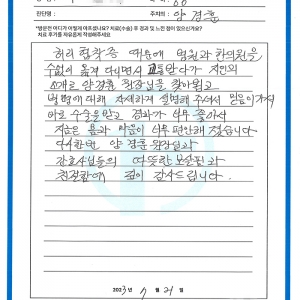 진단명 : 주치의 : 양경훈
*방문전 어디가 어떻게 아프셨나요? 치료(수술) 후 경과 및 느낀 점이 있으신가요?
치료 후기를 자유롭게 작성해주세요.
허리 협착증 때문에 병원과 한의원을
수없이 옮겨 다니면서 고통받다가 지인의
소개로 양경훈 원장님을 찾아뵙고
병명에 대해 자세하게 설명해 주셔서 믿음이 가서
바로 수술을 받고 경과가 너무 좋아서
지금은 몸과 마음이 너무 편안해 졌습니다
다시한번 양경훈 원장님과
간호사님들의 따뜻한 보살핌과
친절함에 깊이 감사드립니다.
2023 년 월 21 일